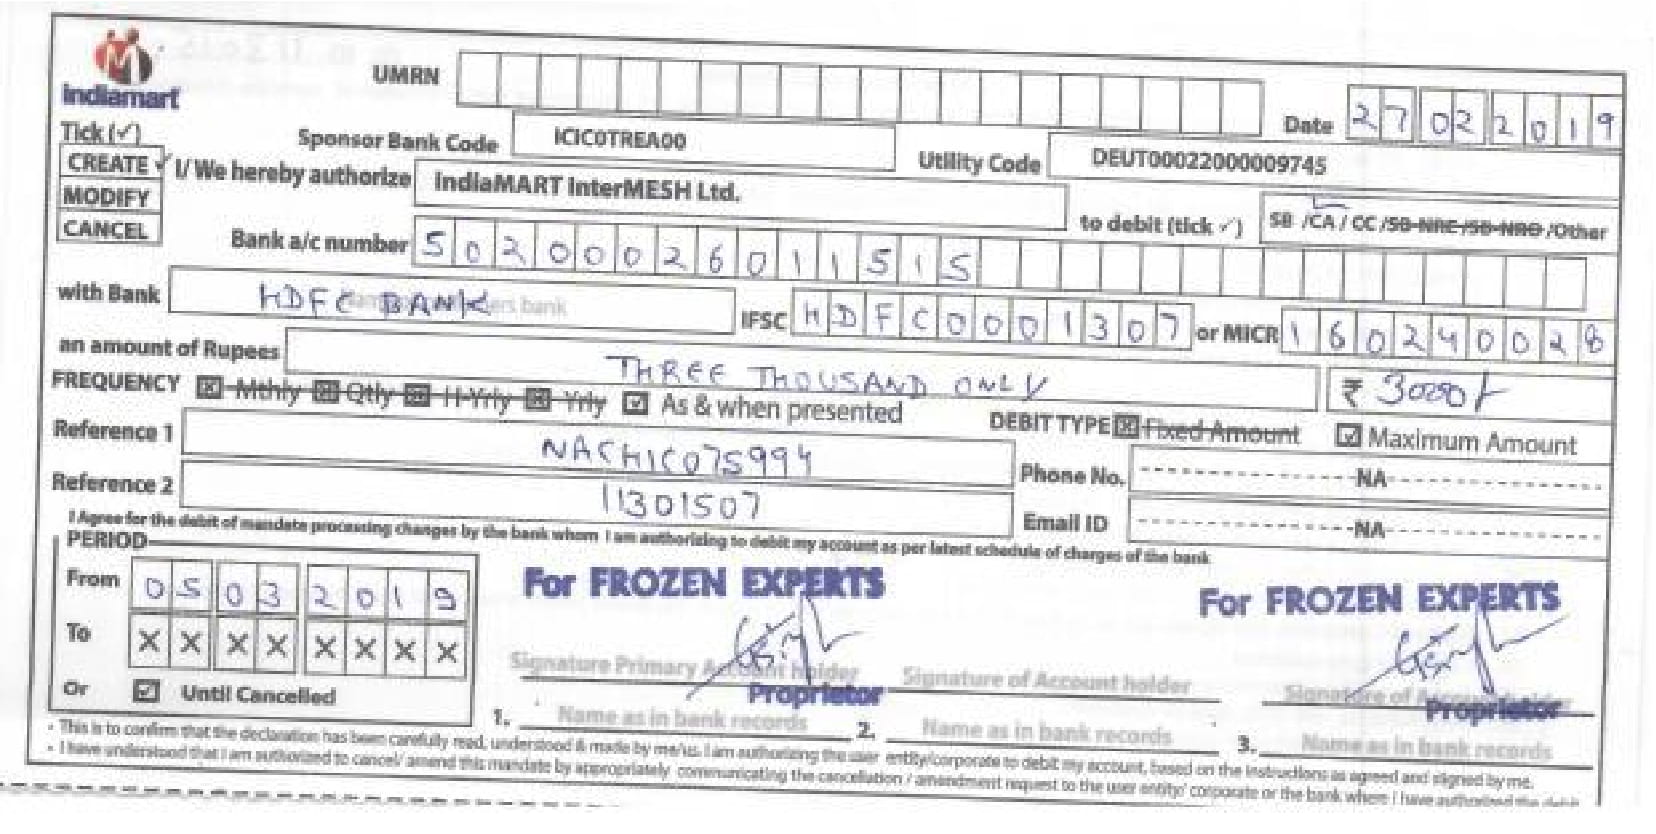 indiamart
UMRN
Date 27022019
Tick (✓)
Sponsor Bank Code ICIC0TREA00 Utility Code DEUT00022000009745
CREATE ✓ I/ We hereby authorize IndiaMART InterMESH Ltd. to debit (tick ✓) SB /CA / CC /SB-NRE /SB-NRO /Other
MODIFY
CANCEL
Bank a/c number 50200026011515
with Bank HDFC BANK IFSC HDFC0001307 or MICR 160240028
an amount of Rupees THREE THOUSAND ONLY ₹ 3000/-
FREQUENCY Mthly Qtly H-Yrly Yrly As & when presented DEBIT TYPE Fixed Amount Maximum Amount
Reference 1 NACHIC075994 Phone No. NA
Reference 2 11301507 Email ID NA
I Agree for the debit of mandate processing changes by the bank whom I am authorizing to debit my account as per latest schedule of charges of the bank
PERIOD
From 05032019
To XXXXXXXX
Or Until Cancelled
For FROZEN EXPERTS For FROZEN EXPERTS
Signature Primary Account holder Signature of Account holder Signature of Account holder
Proprietor Proprietor
1. Name as in bank records 2. Name as in bank records 3. Name as in bank records
- This is to confirm that the declaration has been carefully read, understood & made by me/us. I am authorizing the user entity/corporate to debit my account, based on the instructions as agreed and signed by me.
- I have understood that I am authorized to cancel/ amend this mandate by appropriately communicating the cancellation / amendment request to the user entity/ corporate or the bank where I have authorized the debit